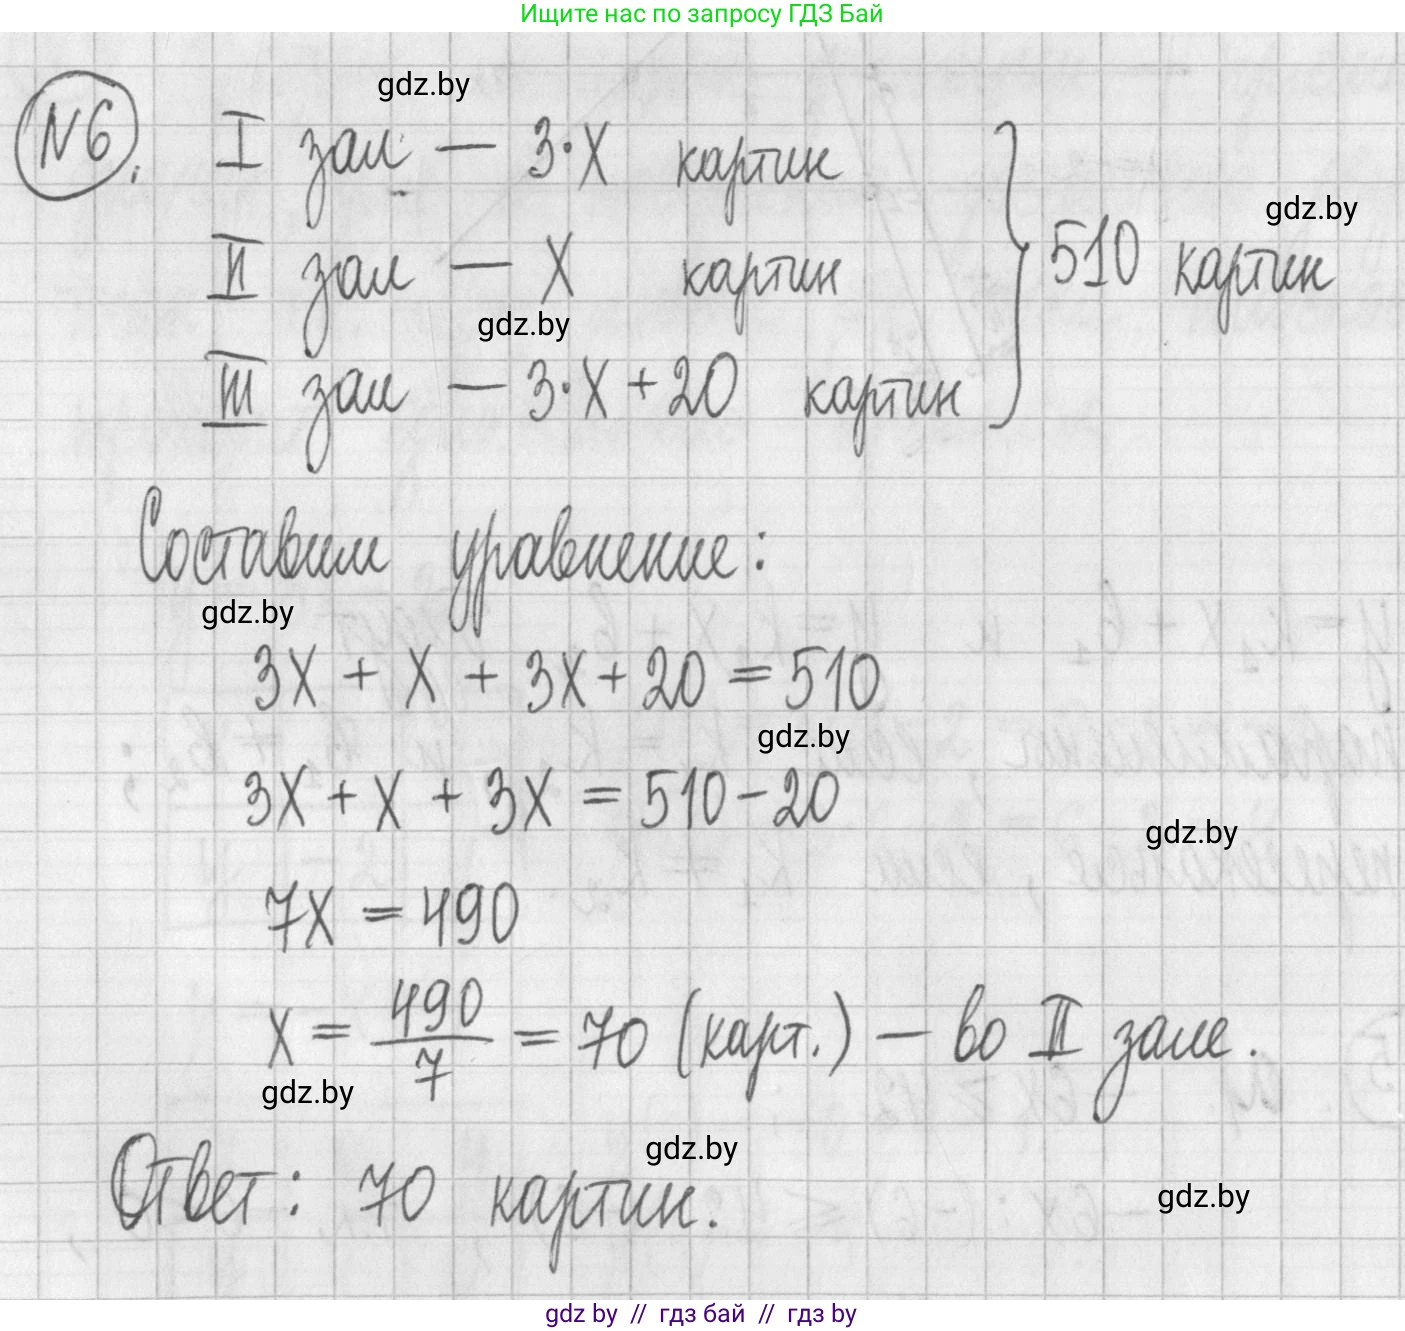 Ищите нас по запросу ГДЗ Бай
gdz.by
№6. I зал — 3·X картин
gdz.by
II зал — X картин
510 картин
gdz.by
III зал — 3·X + 20 картин
Составим уравнение:
gdz.by
3X + X + 3X + 20 = 510
gdz.by
3X + X + 3X = 510 - 20
gdz.by
7X = 490
X = 490/7 = 70 (карт.) — во II зале.
gdz.by
gdz.by
Ответ: 70 картин.
gdz.by
gdz by // гдз бай // гдз by